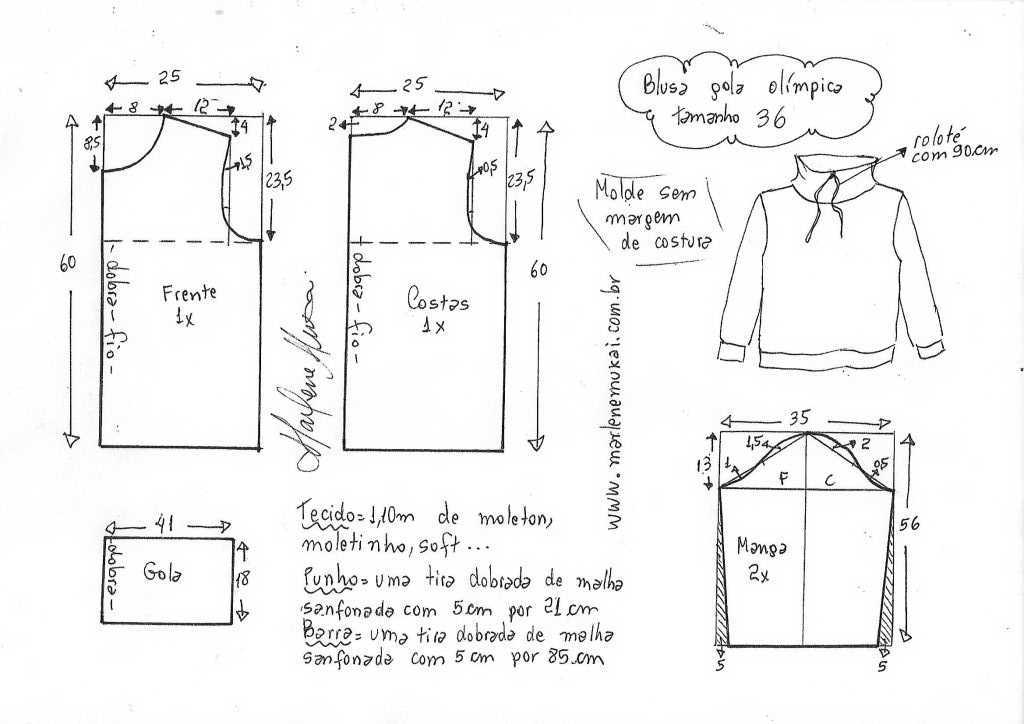 Blusa gola olímpica
tamanho 36
roloté
com 90.cm
Molde sem
margem
de costura
www.marlenemukai.com.br
25
8
12
4
8,5
1,5
23,5
60
-dobra-fio-
Frente
1x
25
8
12
2
4
0,5
23,5
60
dobra-fio-
Costas
1x
Marlene Mukai
41
-dobra-
Gola
18
Tecido=1,10m de moleton,
moletinho, soft...
Punho=uma tira dobrada de malha
sanfonada com 5.cm por 21.cm
Barra=uma tira dobrada de malha
sanfonada com 5cm por 85.cm
35
13
1
1,5
2
0,5
F
C
56
Manga
2x
5
5